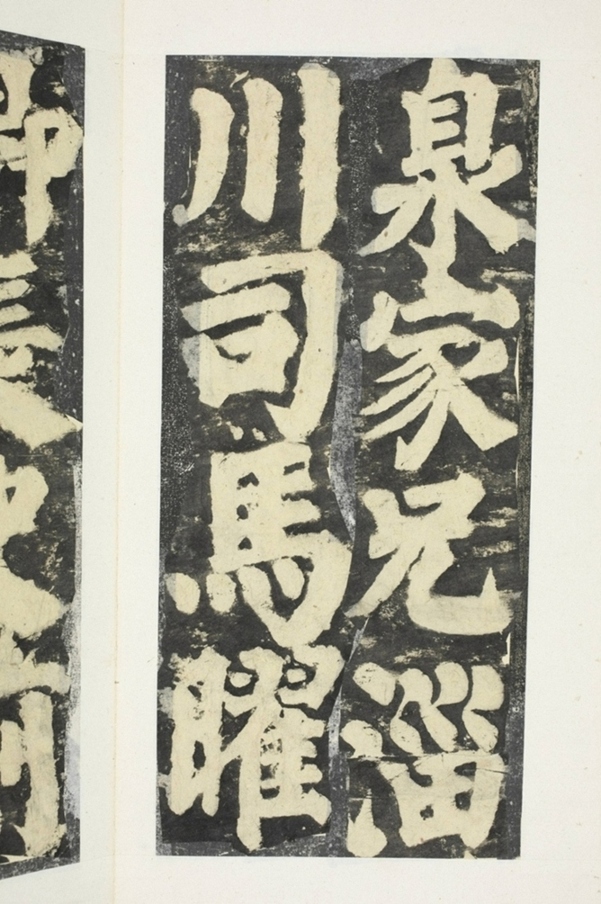 泉家兄淄
川司馬曜